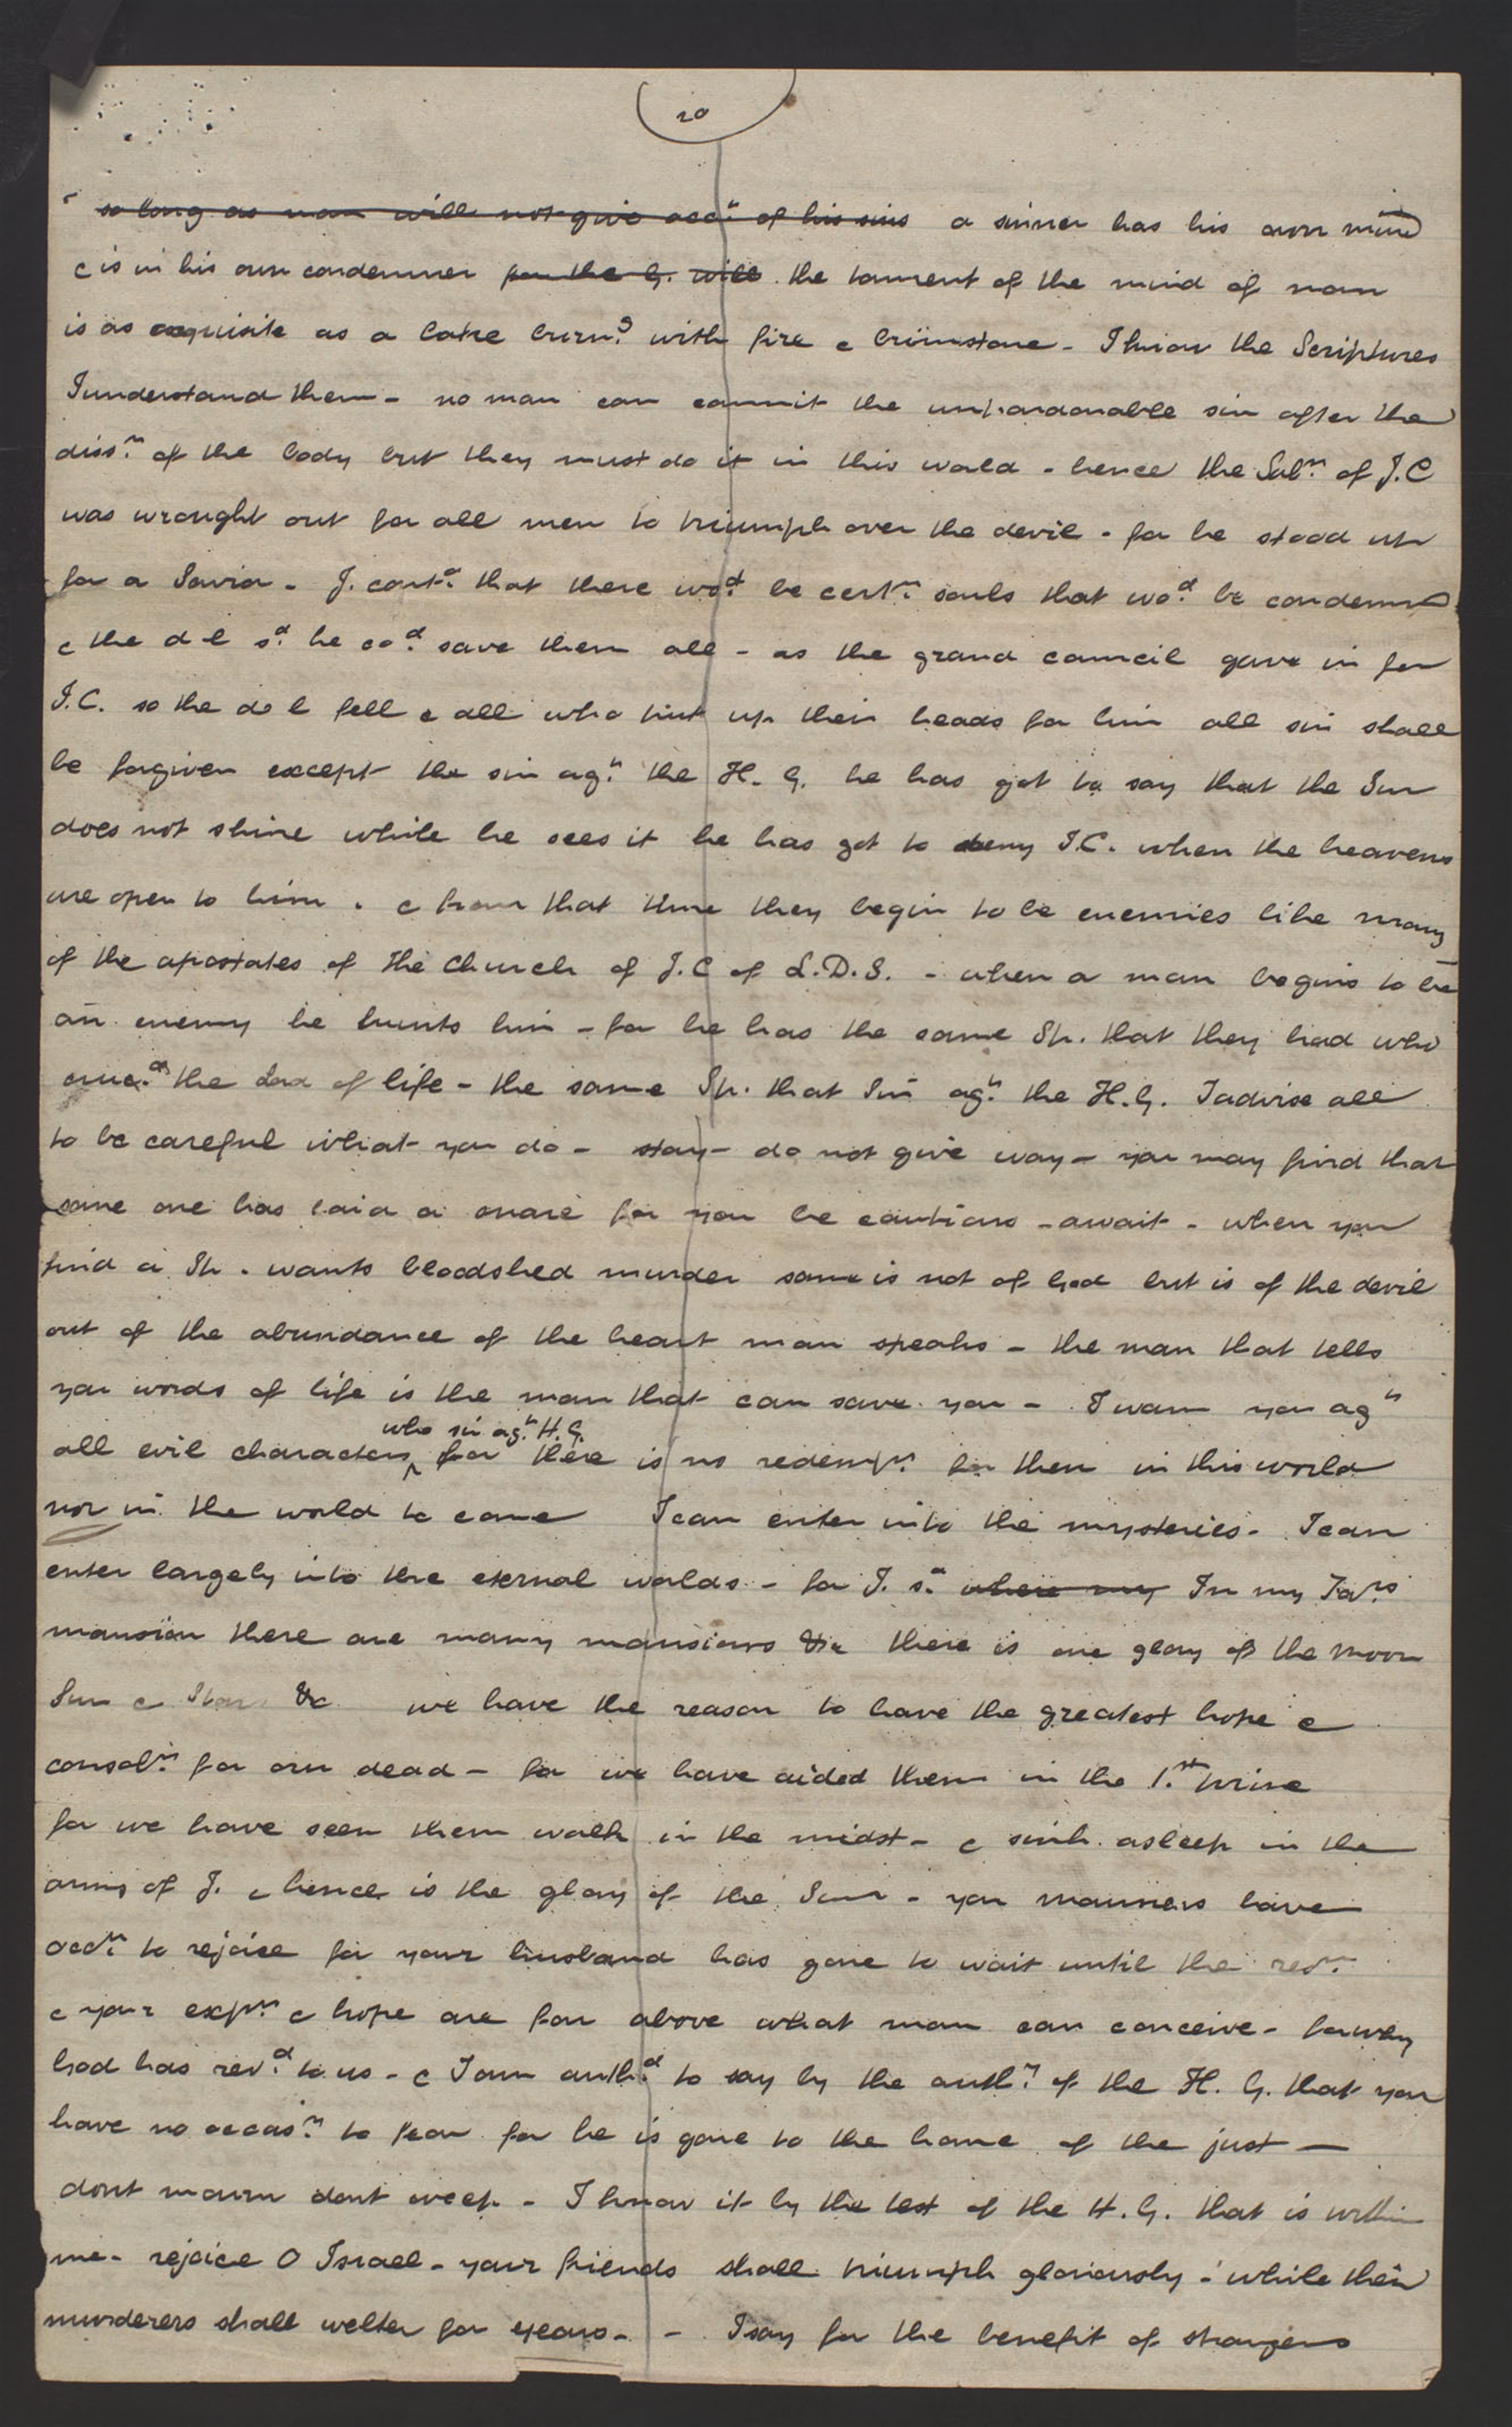 20
so long as man will not give acc.t of his sins a sinner has his own mind
& is in his own condemner for the G. will the torment of the mind of man
is as exquisite as a lake burn.g with fire & brimstone - I know the Scriptures
I understand them - no man can commit the unpardonable sin after the
diss.n of the body but they must do it in this world - hence the Sal.n of J.C
was wrought out for all men to triumph over the devil - for he stood up
for a Savior - J. cont.d that there wo.d be cert.n souls that wo.d be condemned
& the d-l s.d he co.d save them all - as the grand council gave in for
J.C. so the de l fell & all who put up their heads for him all sin shall
be forgiven except the sin ag.n the H. G. he has got to say that the Sun
does not shine while he sees it he has got to deny J.C. when the heavens
are open to him. & from that time they begin to be enemies like many
of the apostates of the Church of J.C of L.D.S. - when a man begins to be
an enemy he hunts him - for he has the same Sp. that they had who
cruc.d the Lord of life - the same Sp. that Sin ag.n the H.G. I advise all
to be careful what you do - stay - do not give way - you may find that
some one has laid a snare for you be cautious - await - when you
find a Sp. wants bloodshed murder same is not of God but is of the devil
out of the abundance of the heart man speaks - the man that tells
you words of life is the man that can save you - I warn you ag.n
all evil characters who sin ag.n H.G. for there is no redemp.n for them in this world
nor in the world to come I can enter into the mysteries - I can
enter largely into the eternal worlds - for J. s.d where my In my Fa.rs
mansion there are many mansions &c there is one glory of the moon
Sun & Stars &c we have the reason to have the greatest hope &
consol.n for our dead - for we have aided them in the 1.st prine
for we have seen them walk in the midst - & sink asleep in the
arms of J. & hence is the glory of the Sun - you mourners have
occ.n to rejoice for your husband has gone to wait until the res.n
& your exp.n & hope are far above what man can conceive - for why
God has rev.d to us - & I am auth.d to say by the auth.y of the H. G. that you
have no occas.n to fear for he is gone to the home of the just —
dont mourn dont weep - I know it by the test of the H. G. that is within
me - rejoice O Israel - your friends shall triumph gloriously - while their
murderers shall welter for years - - I say for the benefit of strangers